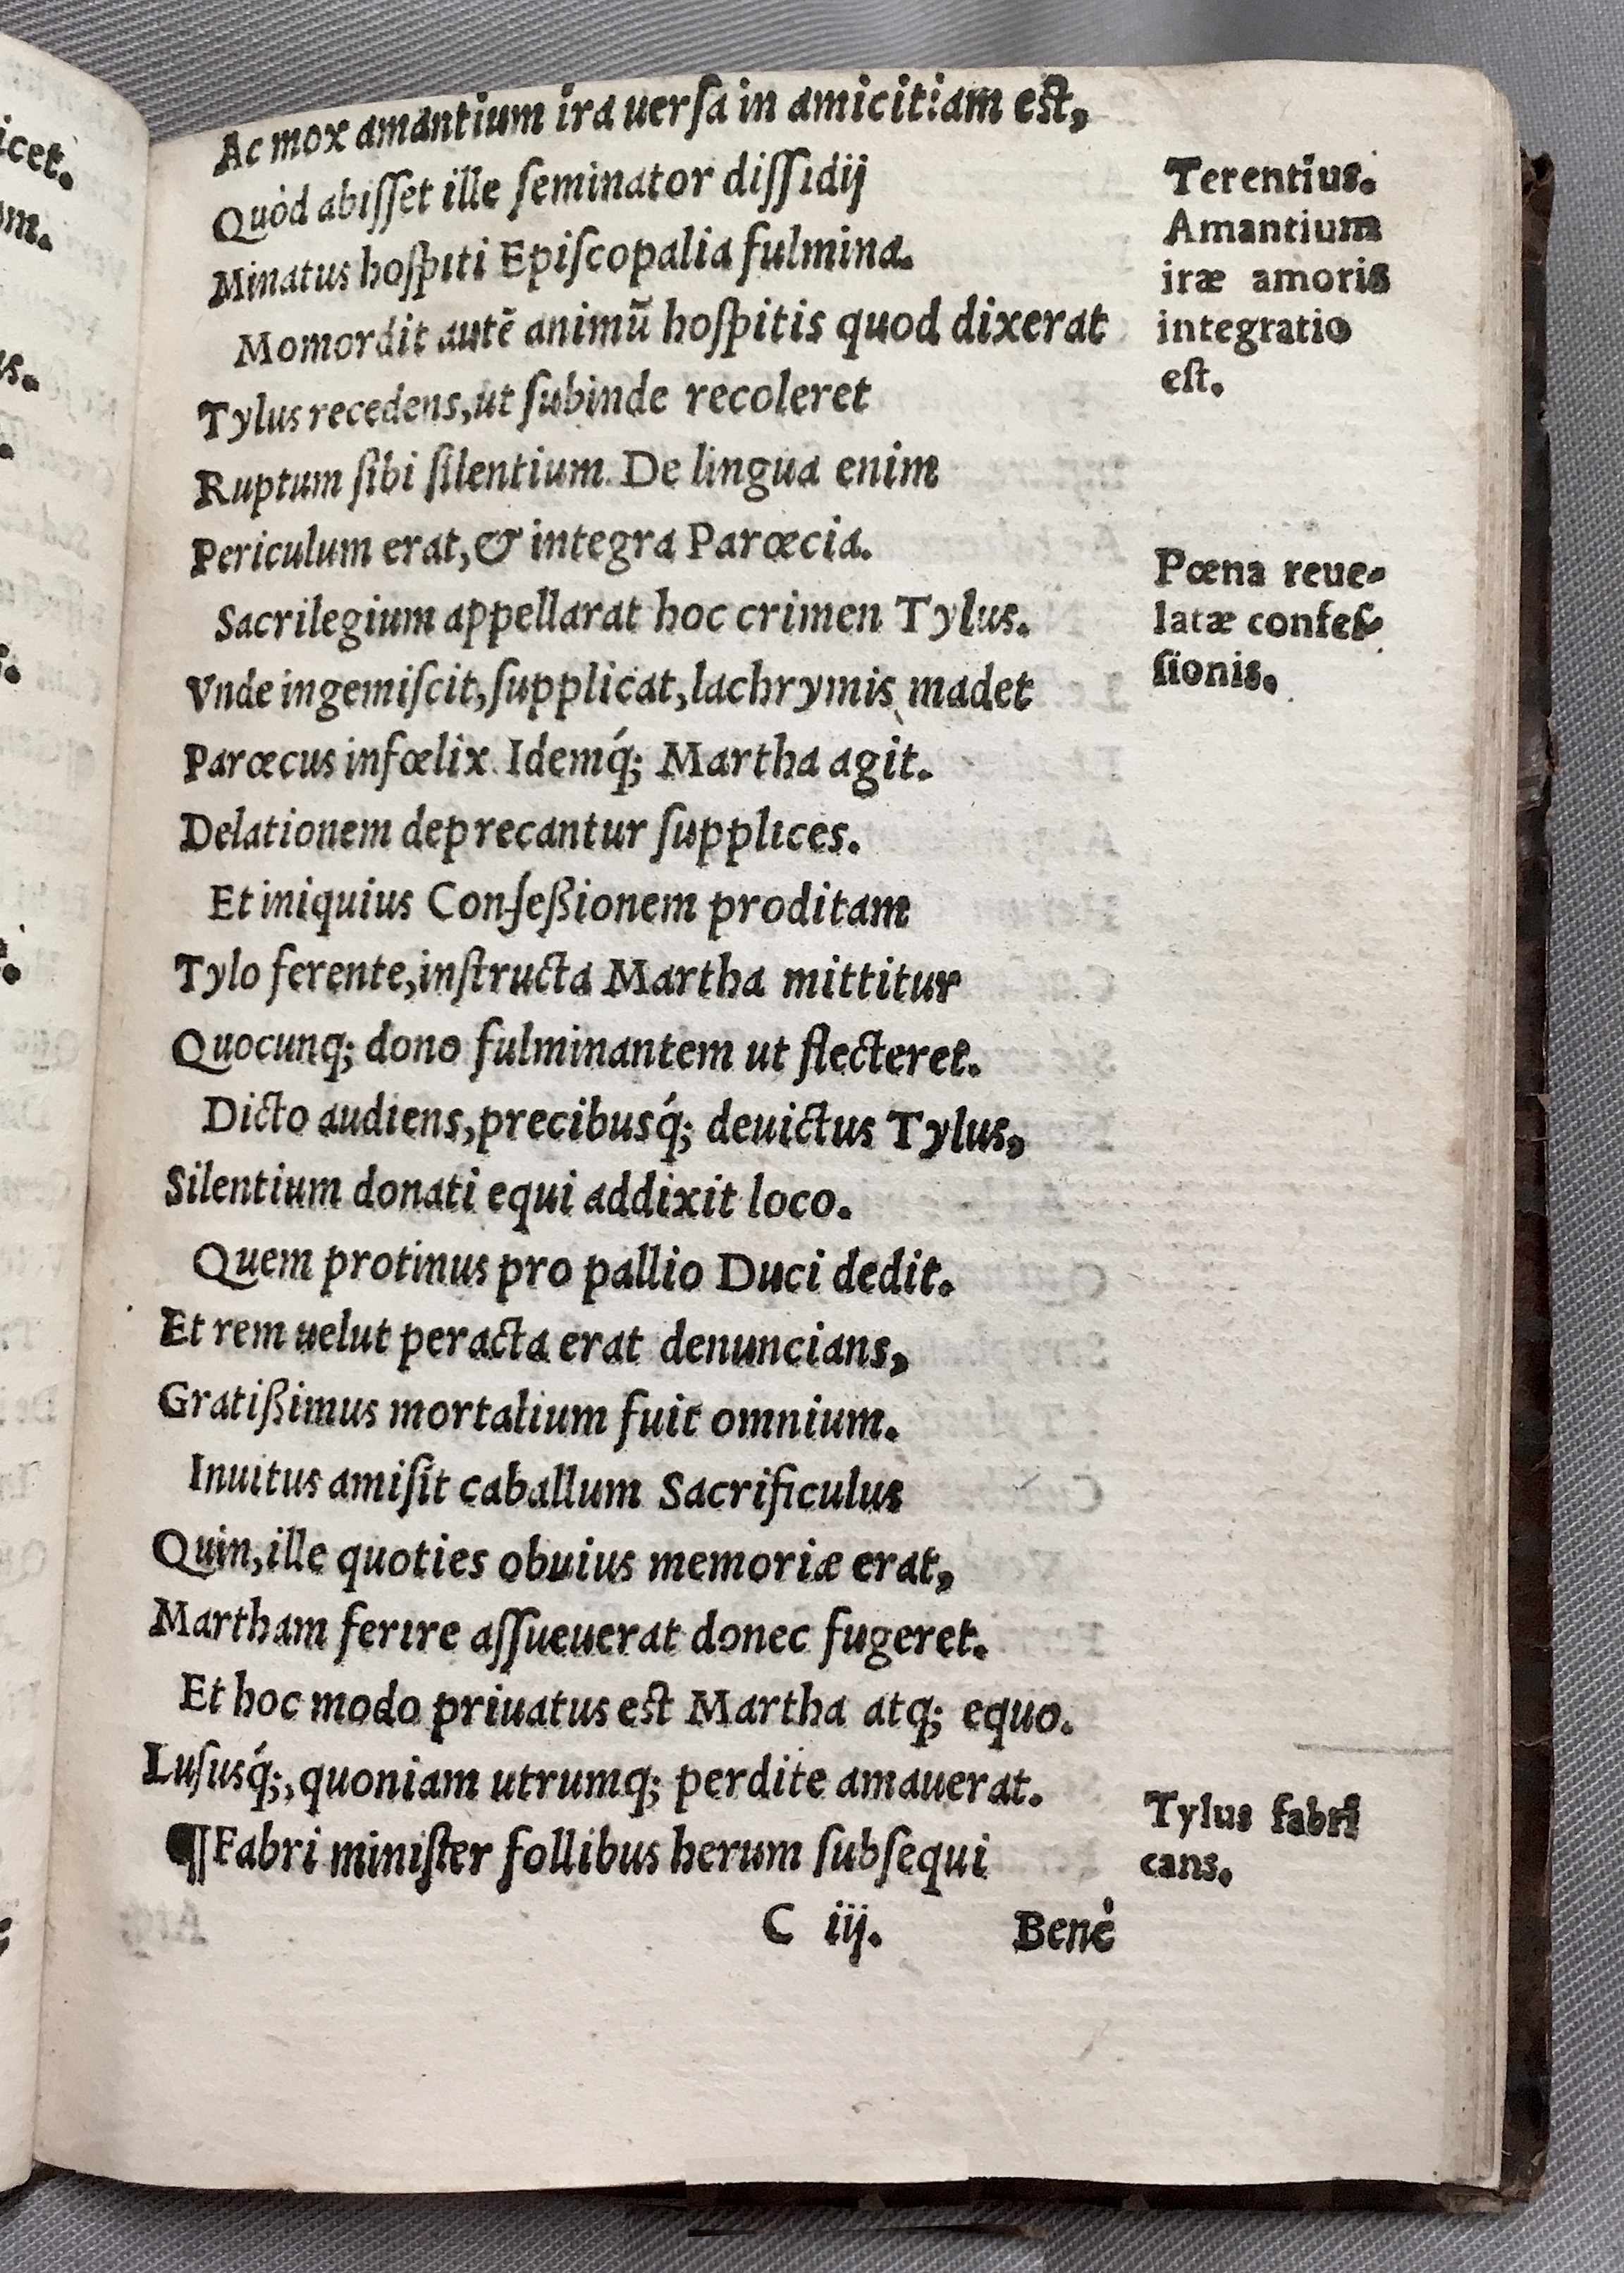 Ac mox amantium ira uerſa in amicitiam eſt,
Quòd abiſſet ille ſeminator diſſidij
Minatus hoſpiti Epiſcopalia fulmina.
Momordit autē animū hoſpitis quod dixerat
Tylus recedens, ut ſubinde recoleret
Ruptum ſibi ſilentium. De lingua enim
Periculum erat, & integra Parœcia.
Sacrilegium appellarat hoc crimen Tylus.
Vnde ingemiſcit, ſupplicat, lachrymis madet
Parœcus infœlix. Idemq́; Martha agit.
Delationem deprecantur ſupplices.
Et iniquius Confeßionem proditam
Tylo ferente, inſtructa Martha mittitur
Quocunq; dono fulminantem ut flecteret.
Dicto audiens, precibusq́; deuictus Tylus,
Silentium donati equi addixit loco.
Quem protinus pro pallio Duci dedit.
Et rem uelut peracta erat denuncians,
Gratißimus mortalium fuit omnium.
Inuitus amiſit caballum Sacrificulus
Quin, ille quoties obuius memoriæ erat,
Martham ferire aſſueuerat donec fugeret.
Et hoc modo priuatus eſt Martha atq; equo.
Luſusq́;, quoniam utrumq; perdite amauerat.
¶ Fabri miniſter follibus herum ſubſequi
C iij. Benè
Terentius.
Amantium
iræ amoris
integratio
eſt.
Pœna reue-
latæ confeſ-
ſionis.
Tylus fabri
cans.
icet.